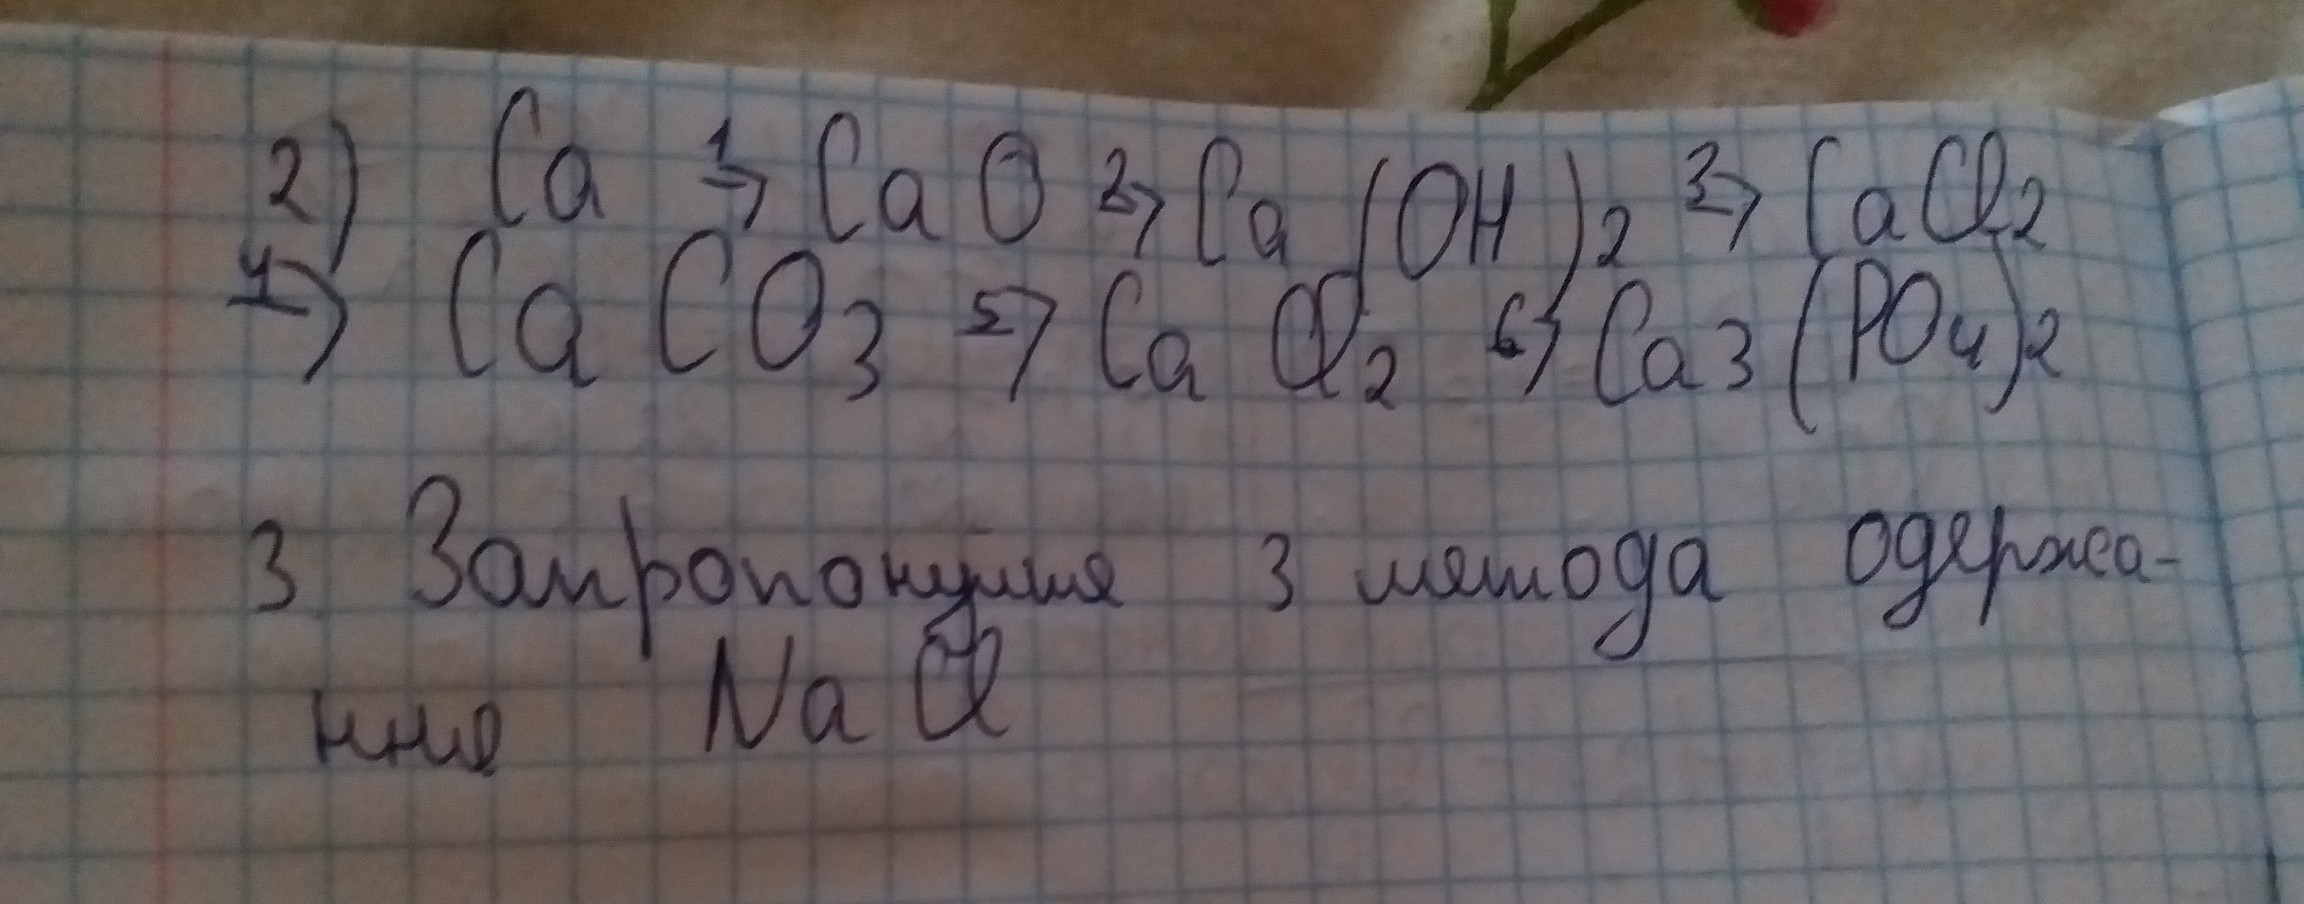 2) Ca 1→ CaO 2→ Ca(OH)2 3→ CaCl2
4→ CaCO3 5→ CaCl2 6→ Ca3(PO4)2
3. Запропонуйте 3 метода одержа-
ння NaCl